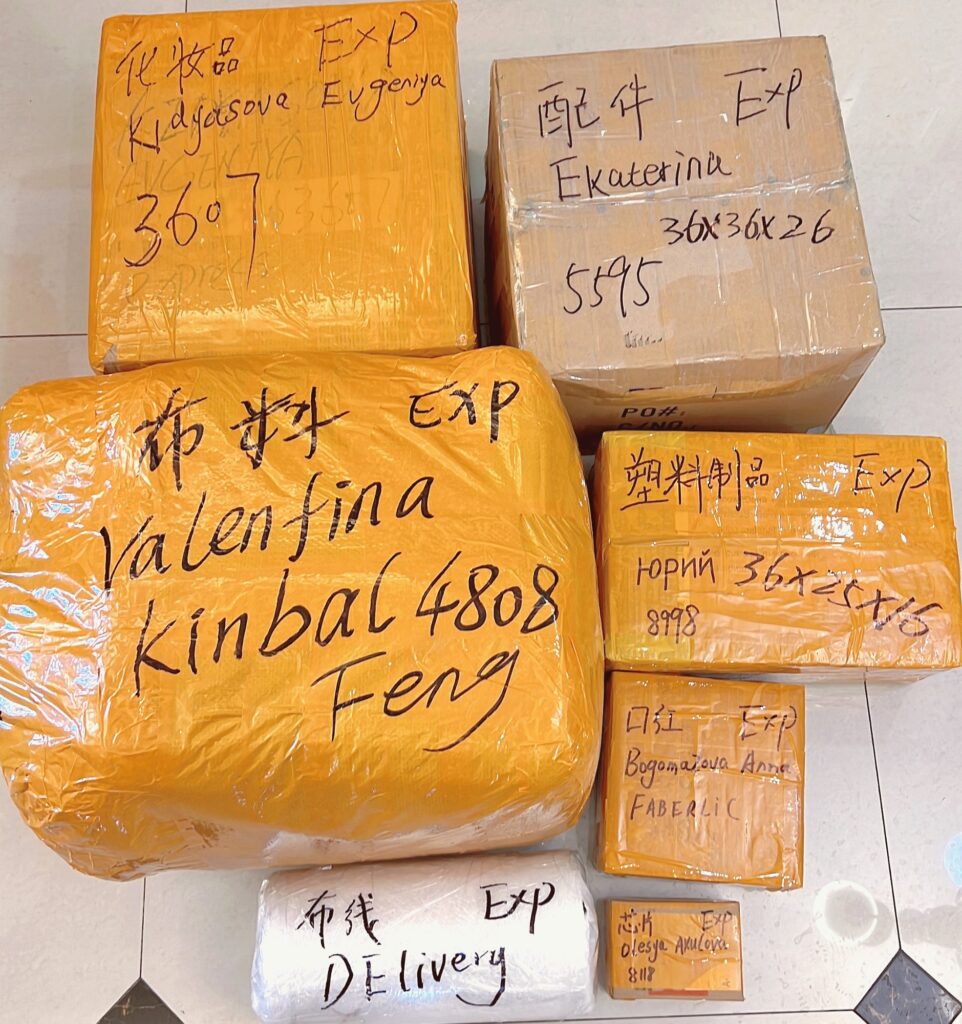 化妆品 Exp
Kidyasova Evgeniya
3607
配件 Exp
Ekaterina
36x36x26
5595
PO#:
布料 Exp
Valenfina
Kinbal 4808
Feng
塑料制品 Exp
Юрий 36x25x16
8998
口红 Exp
Bogomazova Anna
FABERLIC
布线 Exp
DElivery
芯片 Exp
Olesya Akulova
8118